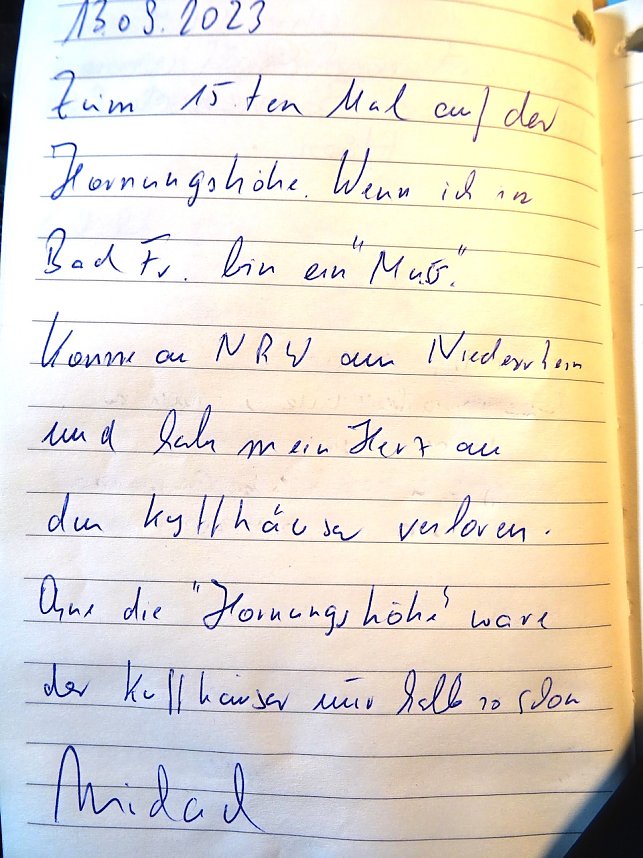 13.09.2023
Zum 15.ten Mal auf der
Hornungshöhe. Wenn ich in
Bad Fr. bin ein "Muß".
Komme au NRW am Niederrhein
und hab mein Herz an
den Kyffhäuser verloren.
Ohne die "Hornungshöhe" wäre
der Kyffhäuser nur halb so schön